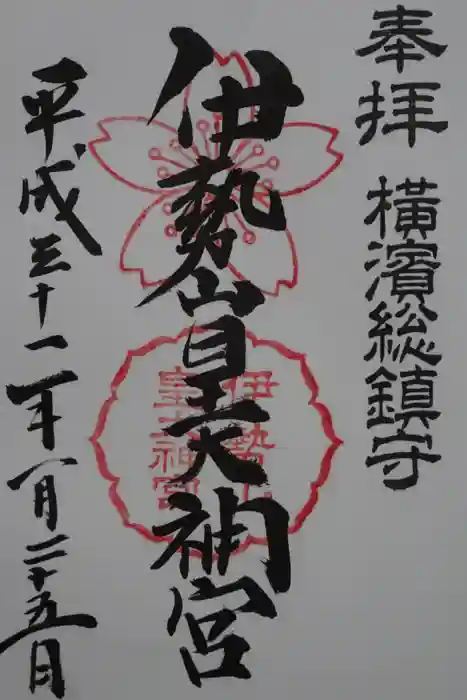 奉拝 横濱総鎮守
伊勢山皇大神宮
伊勢山
皇大神宮
平成三十一年一月二十五日